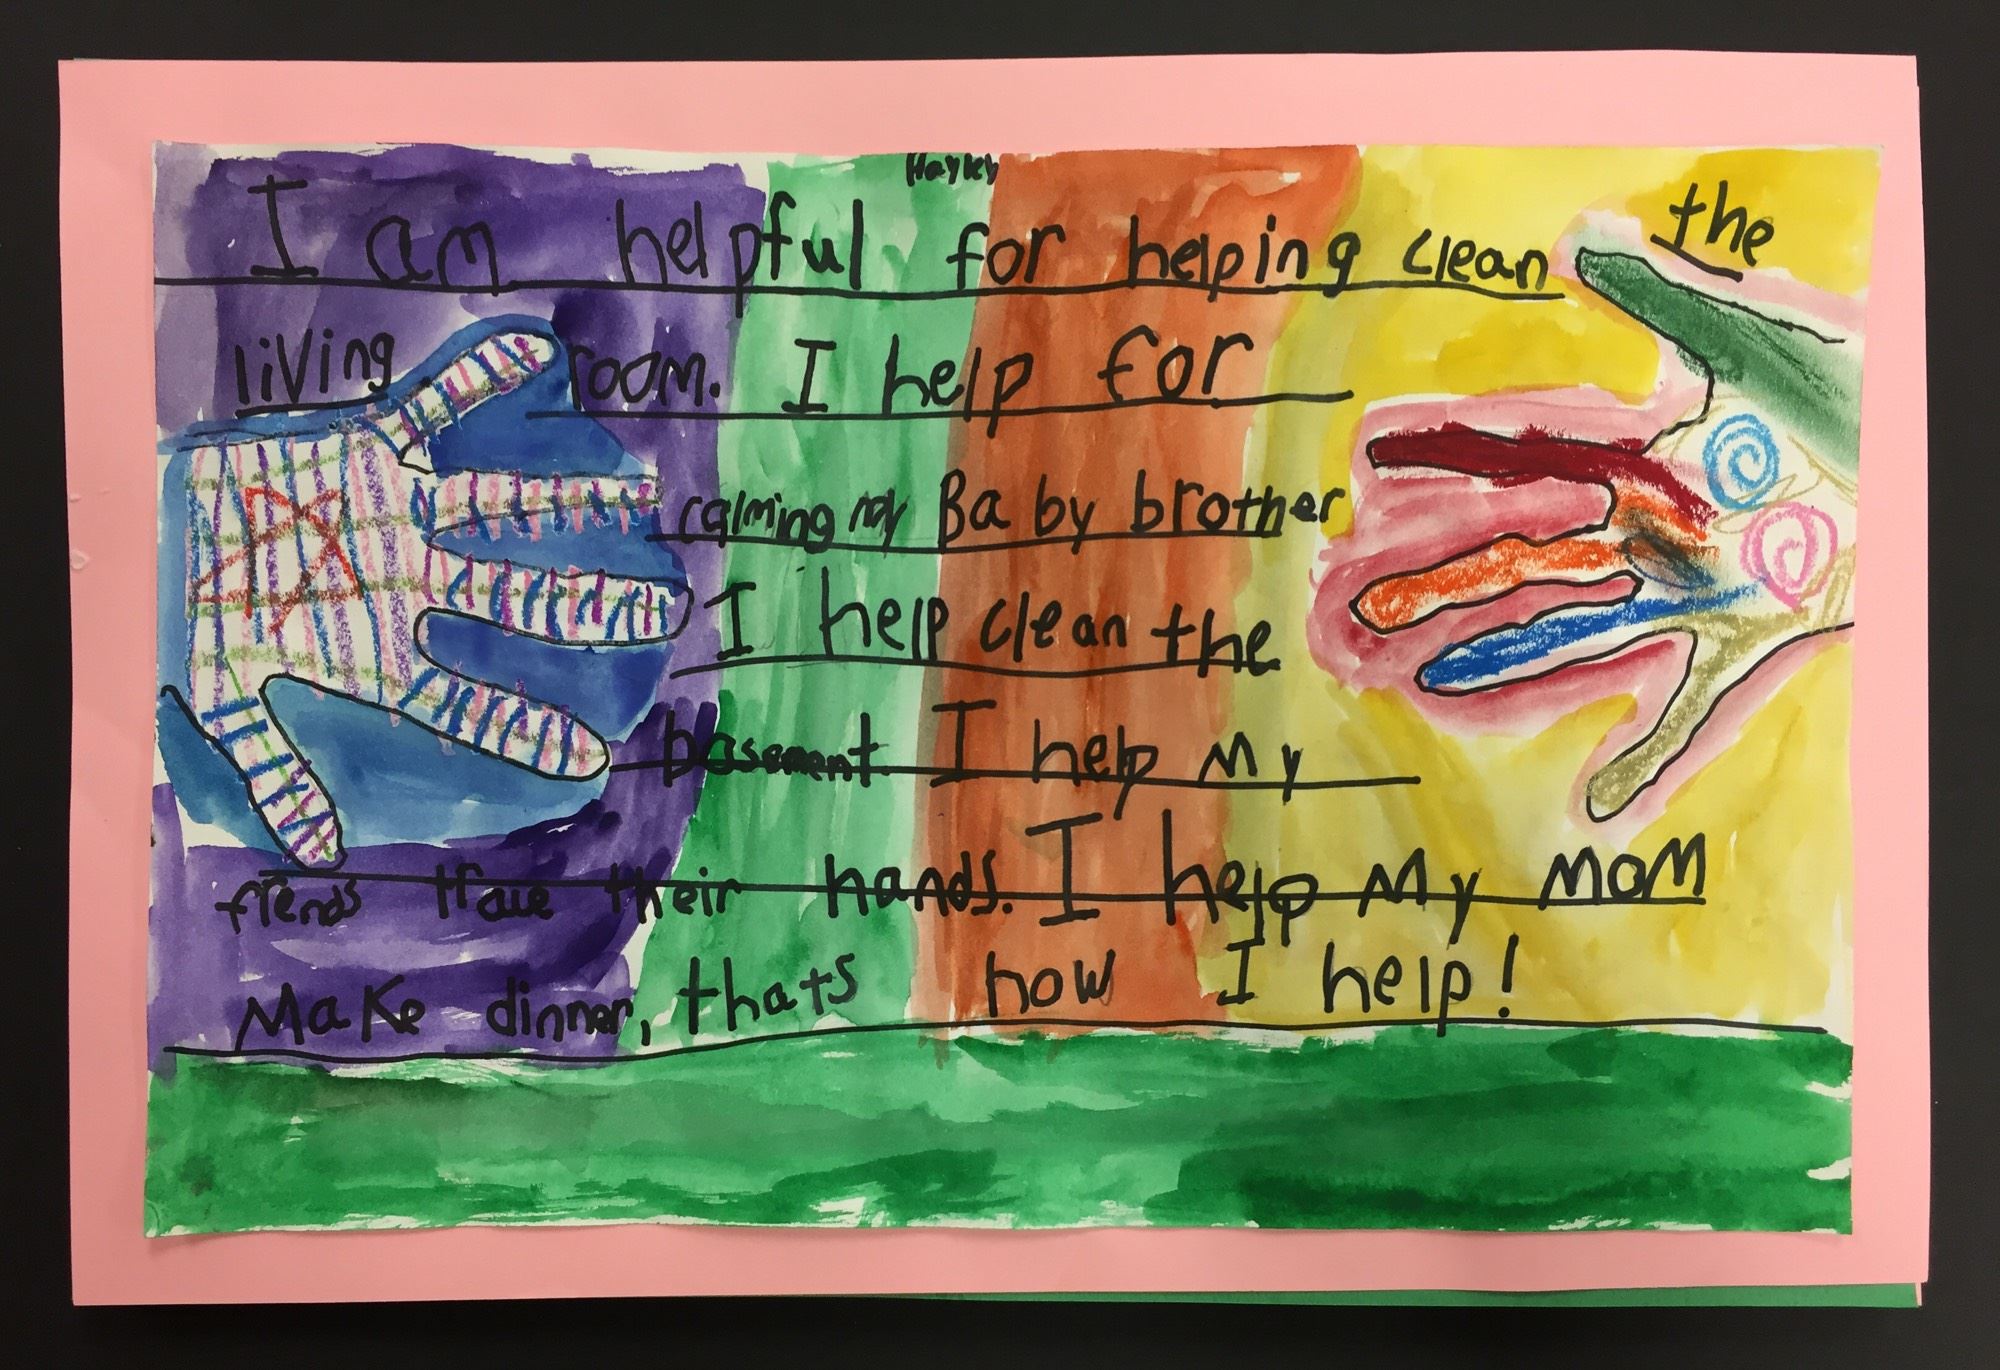 Hayley
I am helpful for helping clean the
living room. I help for
calming my Baby brother
I help clean the
basement. I help my
friends trace their hands. I help My MOM
Make dinner, thats how I help!